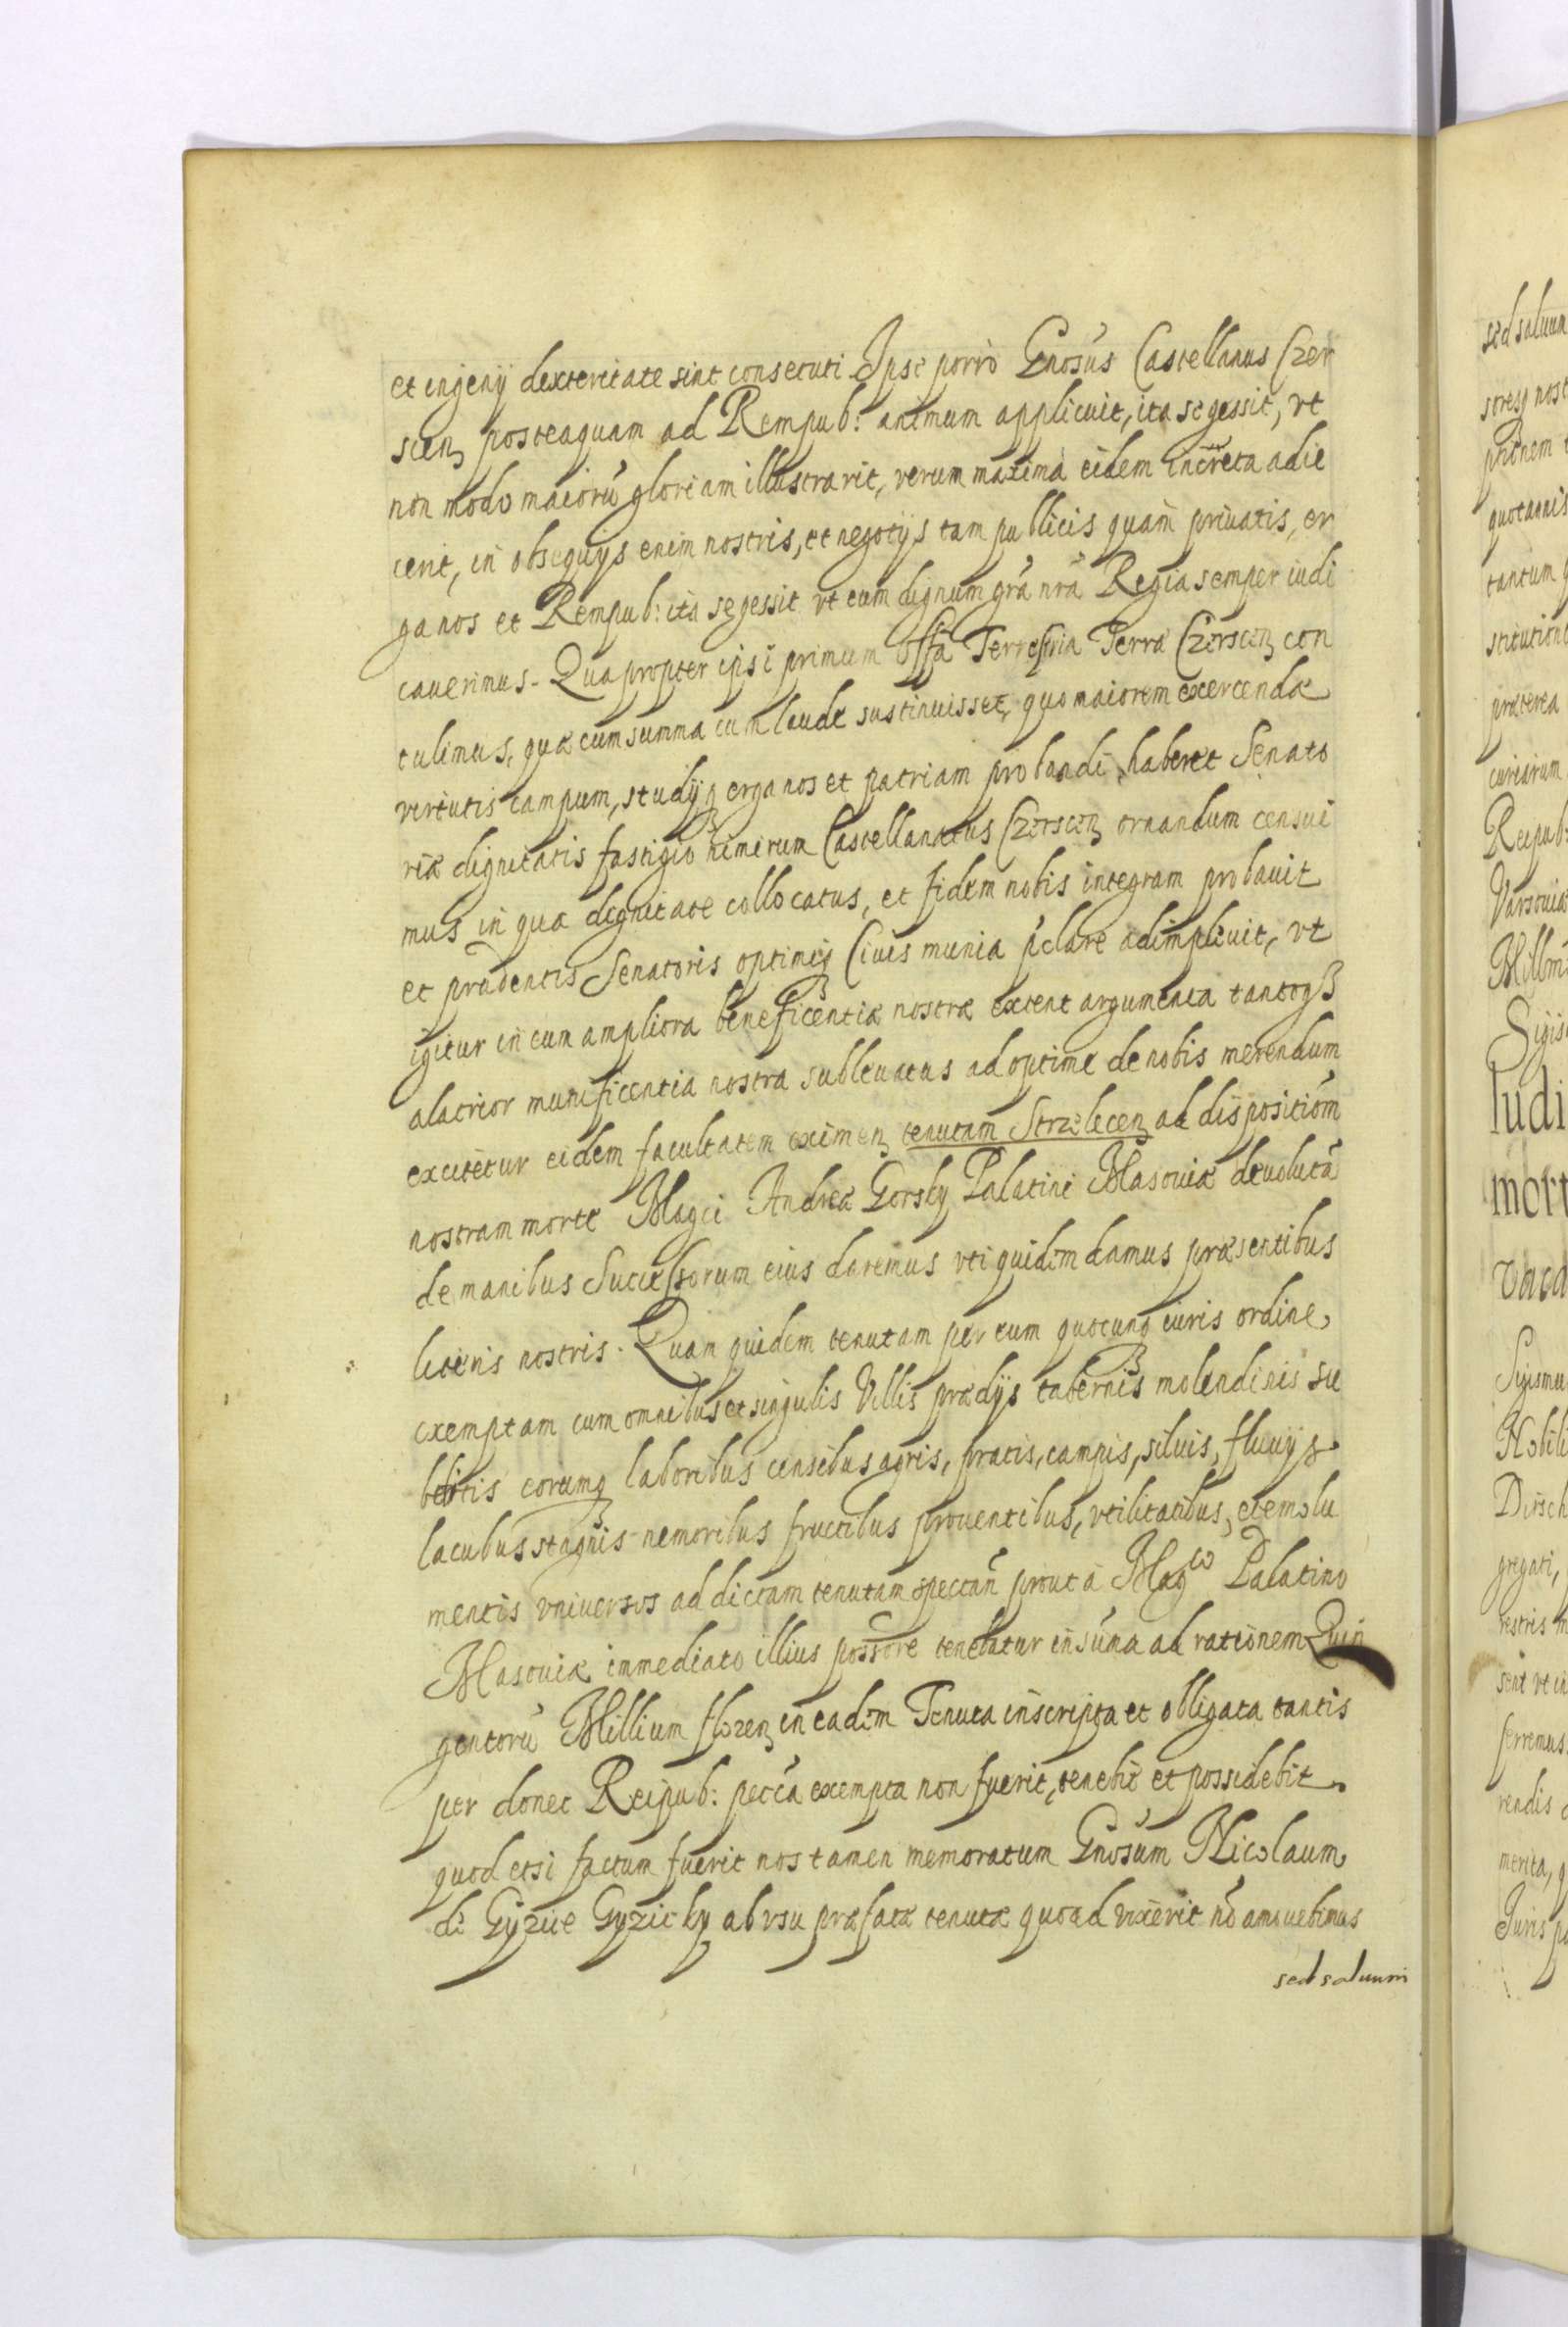 et ingenij dexteritate sint consecuti Ipse porrò Gnosus Castellanus Czer
scen posteaquam ad Rempub: animum applicuit, ita se gessit, vt
non modo maiorũ gloriam illustrarit, verum maxima eidem incremta adie
cerit, in obsequijs enim nostris, et negotijs tam publicis quàm priuatis, er
ga nos et Rempub: ita se gessit vt eum dignum grã nrã Regia semper iudi
cauerimus. Quapropter ipsi primum offa Terrestria Terræ Czerscen con
tulimus, quæ cum summa cum laude sustinuisset, quo maiorem exercendæ
virtutis campum, studijq erga nos et patriam probandi, haberet Senato
riæ dignitatis fastigio nimirum Castellanatus Czerscen ornandum censui
mus in qua dignitate collocatus, et fidem nobis integram probauit
et prudentis Senatoris optimiq Ciuis munia pclare adimpleuit, vt
igitur in eum ampliora beneficentiæ nostræ extent argumenta tantoq
alacrior munificentia nostra subleuatus ad optime de nobis merendum
excitetur eidem facultatem eximen tenutam Strzelecen ad dispositiõm
nostram morte Magci Andreæ Gorsky Palatini Masouiæ deuolutã
de manibus Successorum eius daremus vti quidem damus præsentibus
literis nostris. Quam quidem tenutam per eum quocunq iuris ordine
exemptam cum omnibus et singulis Villis prædijs tabernis molendinis su
bditis eorumq laboribus censibus agris, pratis, campis, siluis, fluuijs
lacubus stagnis nemoribus fructibus prouentibus, vtilitatibus, et emolu
mentis vniuersis ad dictam tenutam spectan prout à Magco Palatino
Masouiæ immediato illius possore tenebatur in suma ad rationem Quin
gentorũ Millium floren in eadem Tenuta inscripta et obligata tantis
per donec Reipub: pecca exempta non fuerit, tenebit et possidebit
quod etsi factum fuerit nos tamen memoratum Gnosum Nicolaum
de Gyzice Gyzicky ab vsu præfatæ tenutæ quoad vixerit nõ amouebimus
sed saluum